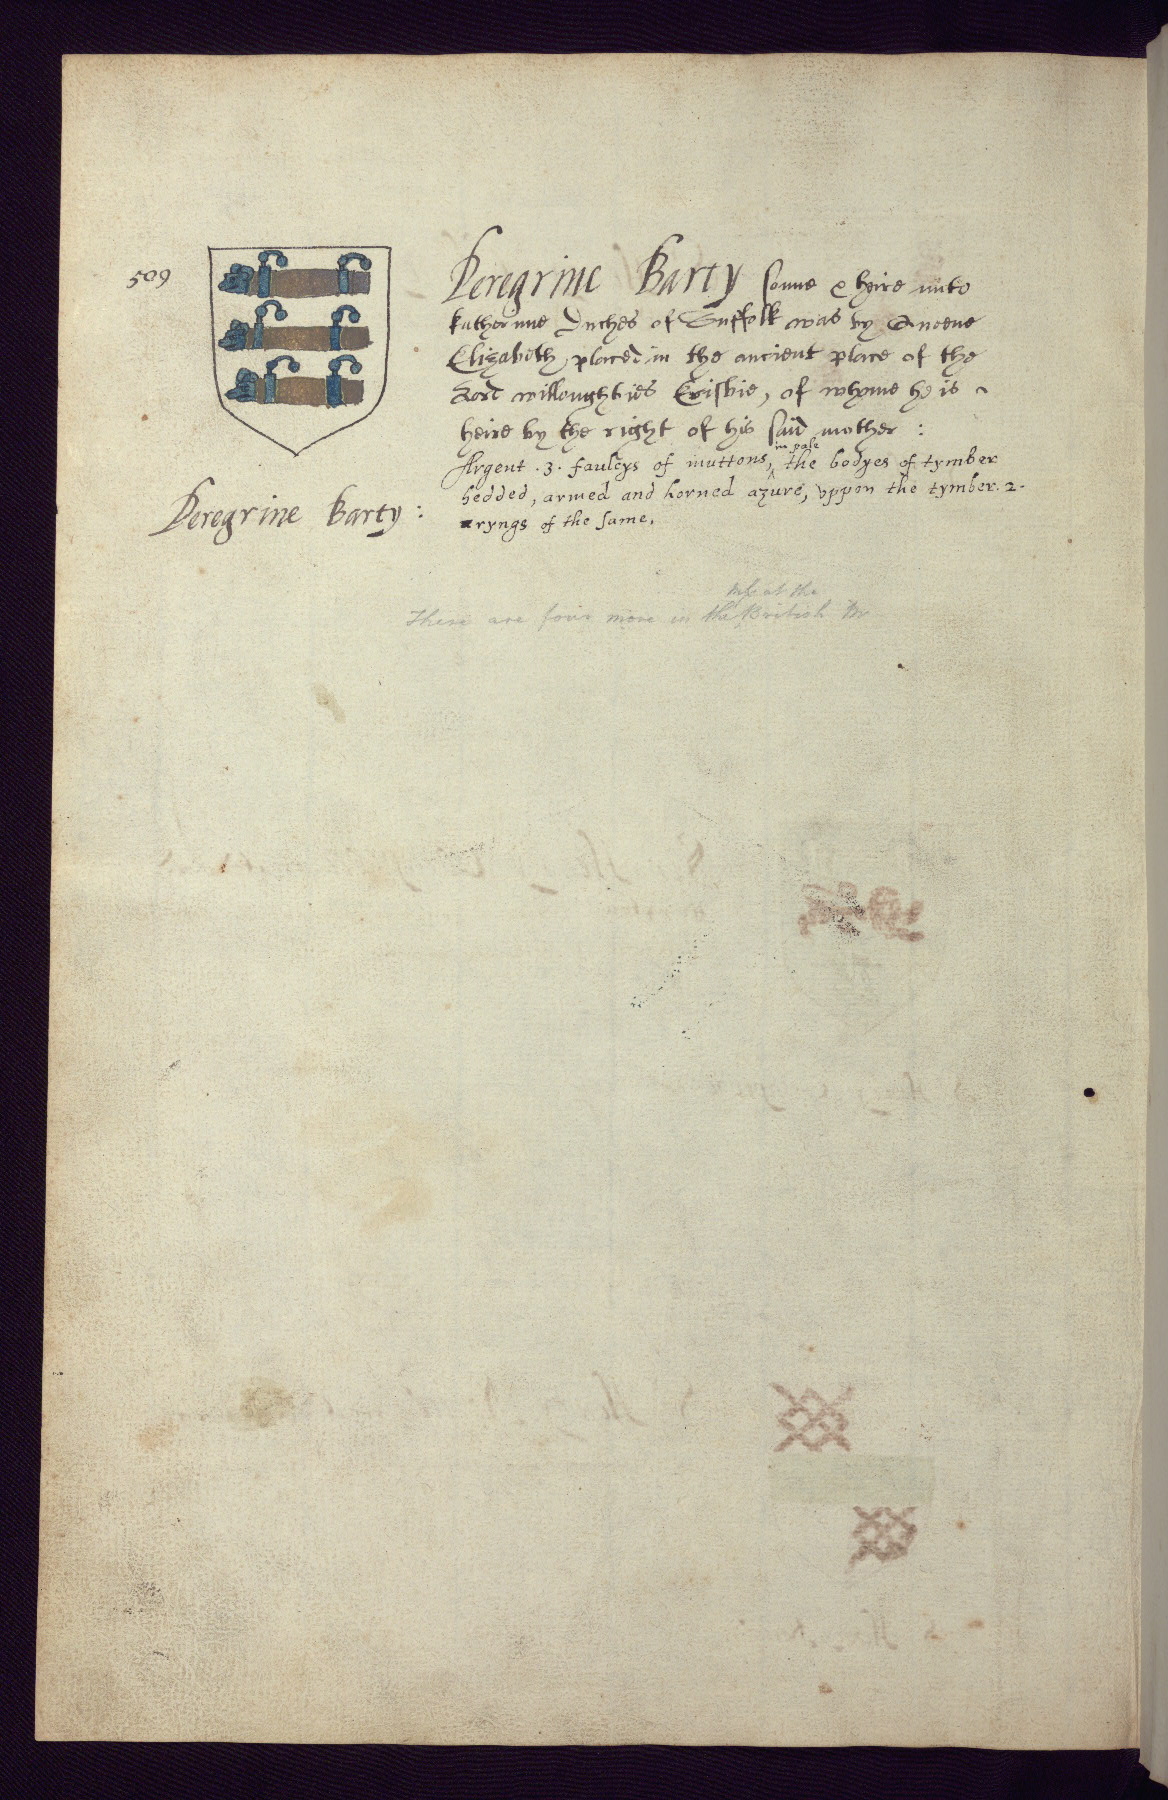 509
Peregrine Barty sonne & heire unto
Katherinne Duches of Suffolk was by Queene
Elizabeth, placed in the ancient place of the
Lord willoughbies Erisbie, of whome he is
heire by the right of his said mother :
in pale
Argent .3. of muttons, the bodyes of tymber
hedded, armed and horned azure, uppon the tymber .2.
ryngs of the same.
Peregrine Barty :
at the
There are four more in the British M